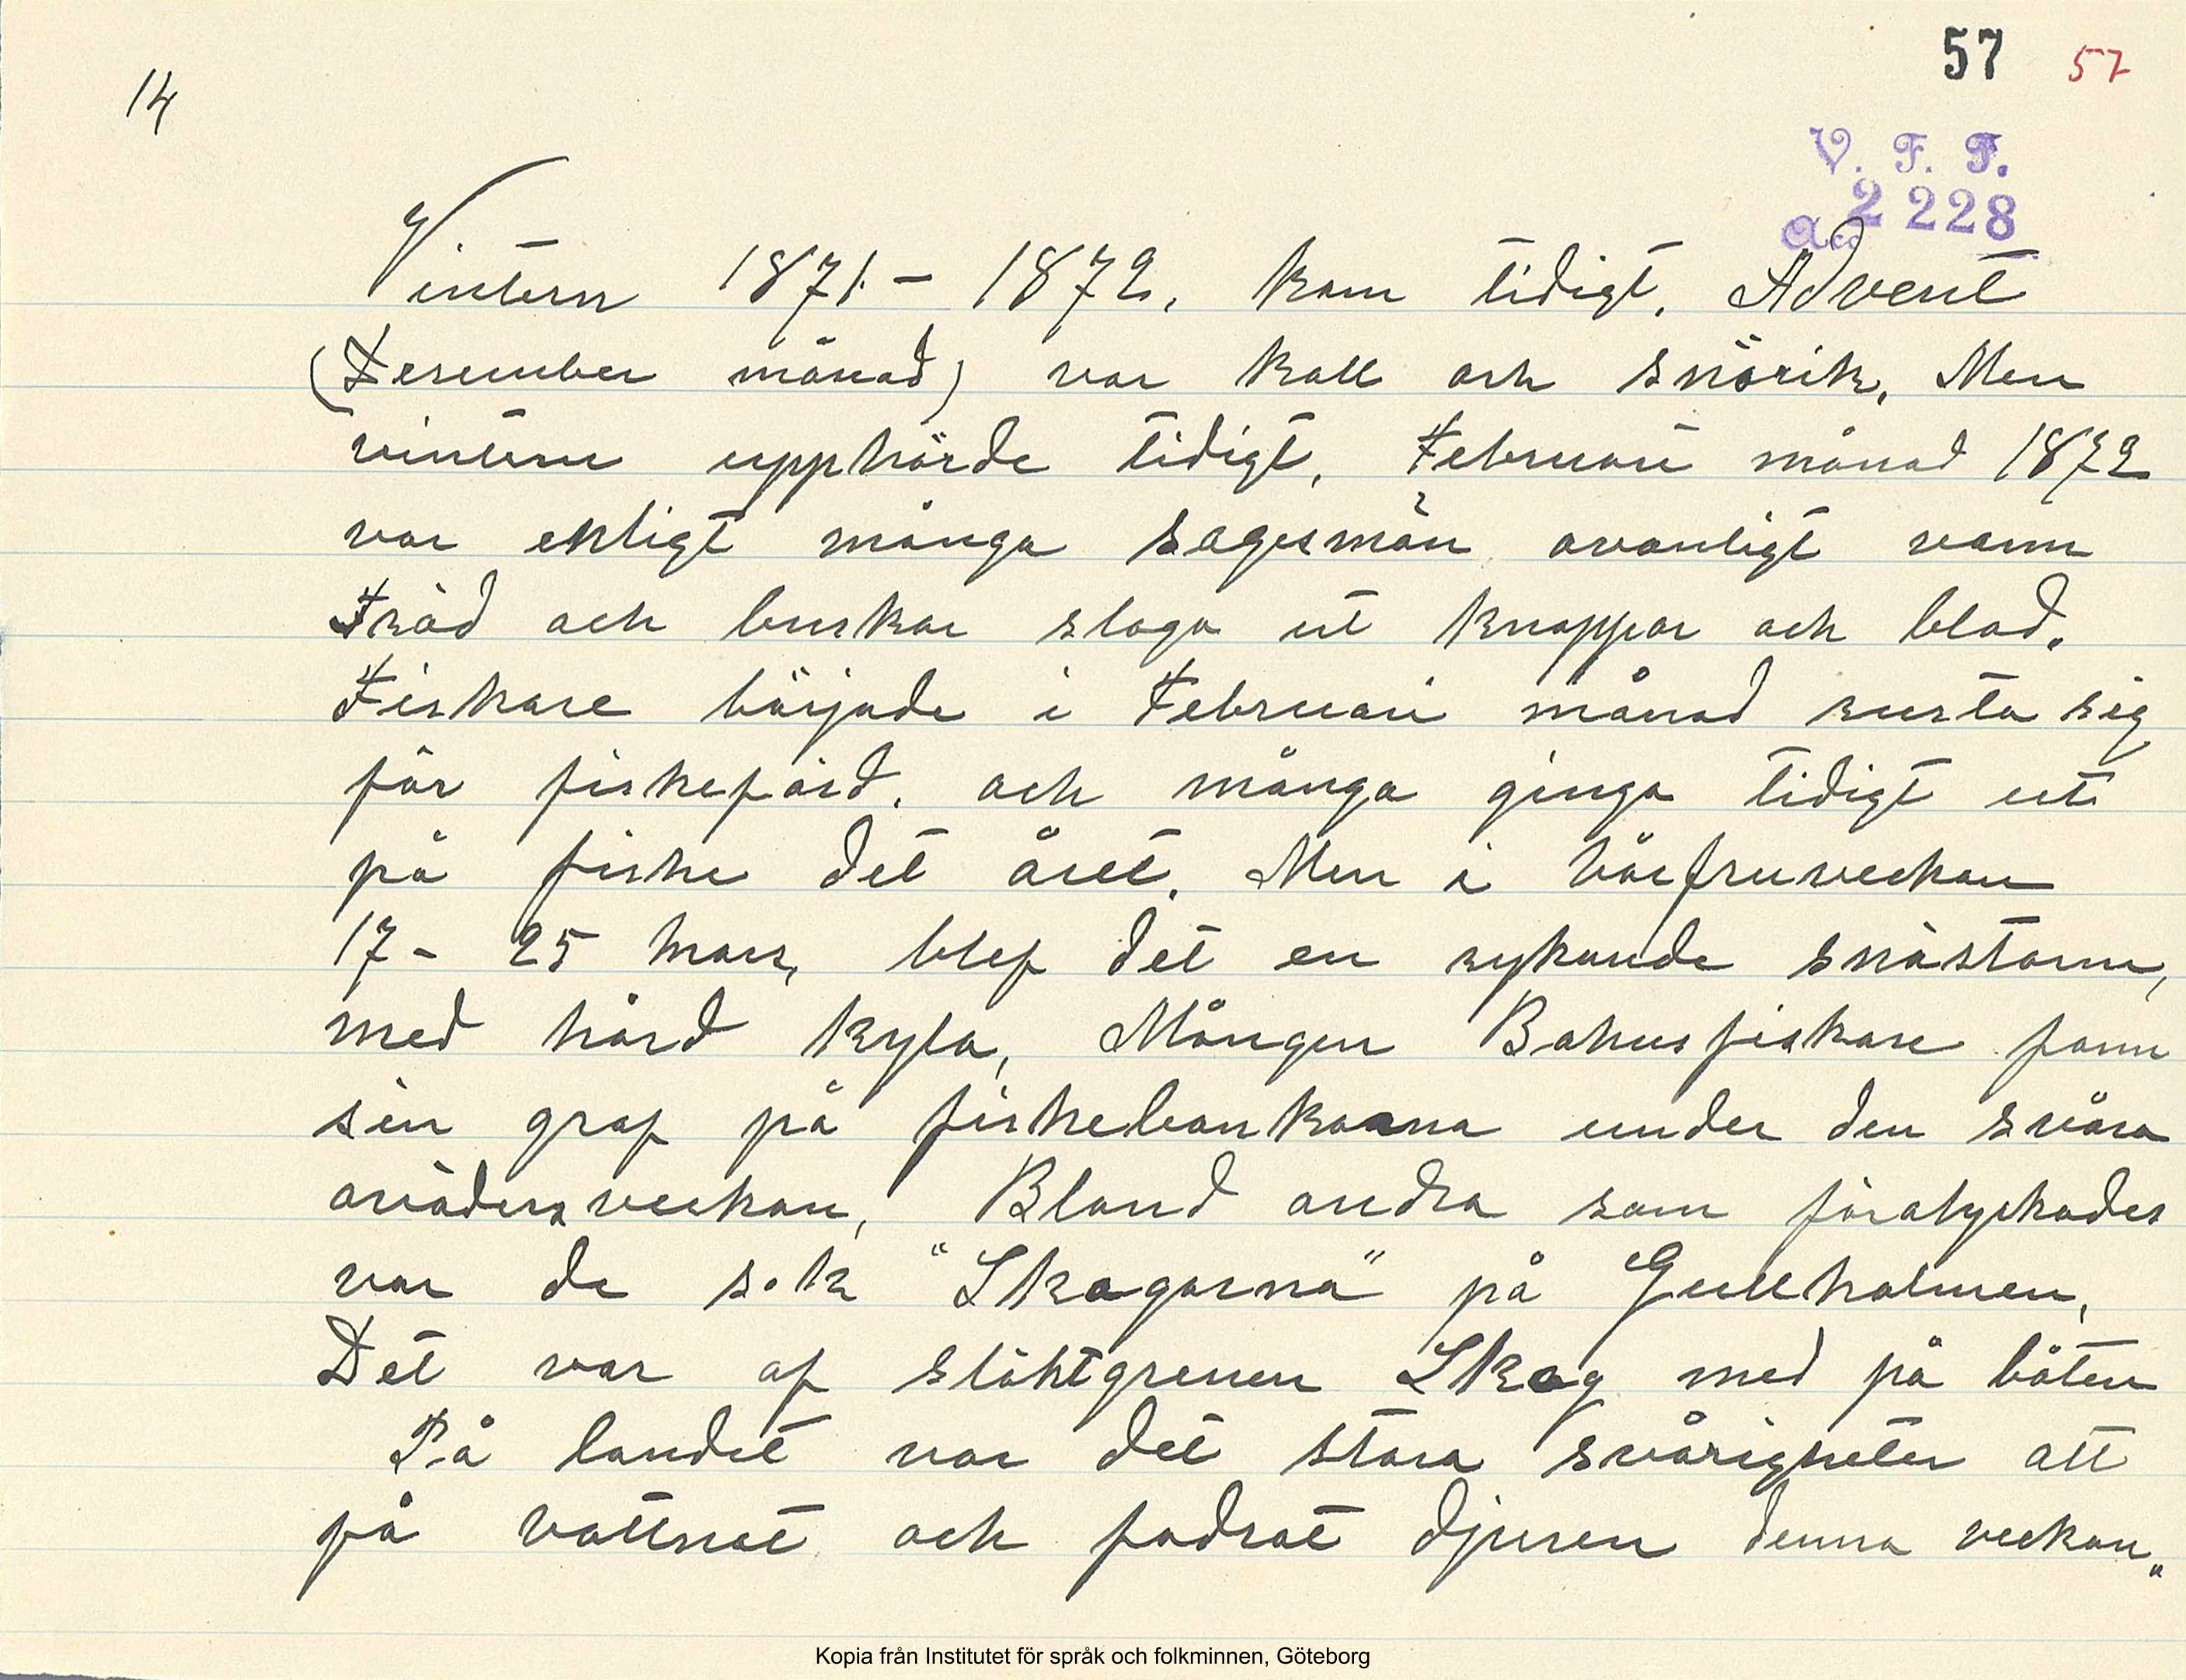 57 57
14
V. F. F.
acc 2228
Vintern 1871.- 1872. kom tidigt. Advent
(Desember månad) var kall och snörik. Men
vintern upphörde tidigt. Februari månad 1872
var enligt många sagesmän ovanligt varm
Träd och buskar sloga ut knoppar och blad.
Fiskare började i Februari månad rusta sig
för fiskefärd. och många ginga tidigt ut
på fiske det året. Men i Vårfruveckan
17- 25 Mars, blef det en rykande snöstorm,
med hård kyla, Mången Bohusfiskare fann
sin graf på fiskebankarna under den svåra
oväders veckan, Bland andra som förolyckades
var de s.k "Skogarna" på Gullholmen,
Det var af släktgrenen Skog med på båten
På landet var det stora svårigheter att
på vattnat och fodrat djuren denna veckan"
Kopia från Institutet för språk och folkminnen, Göteborg